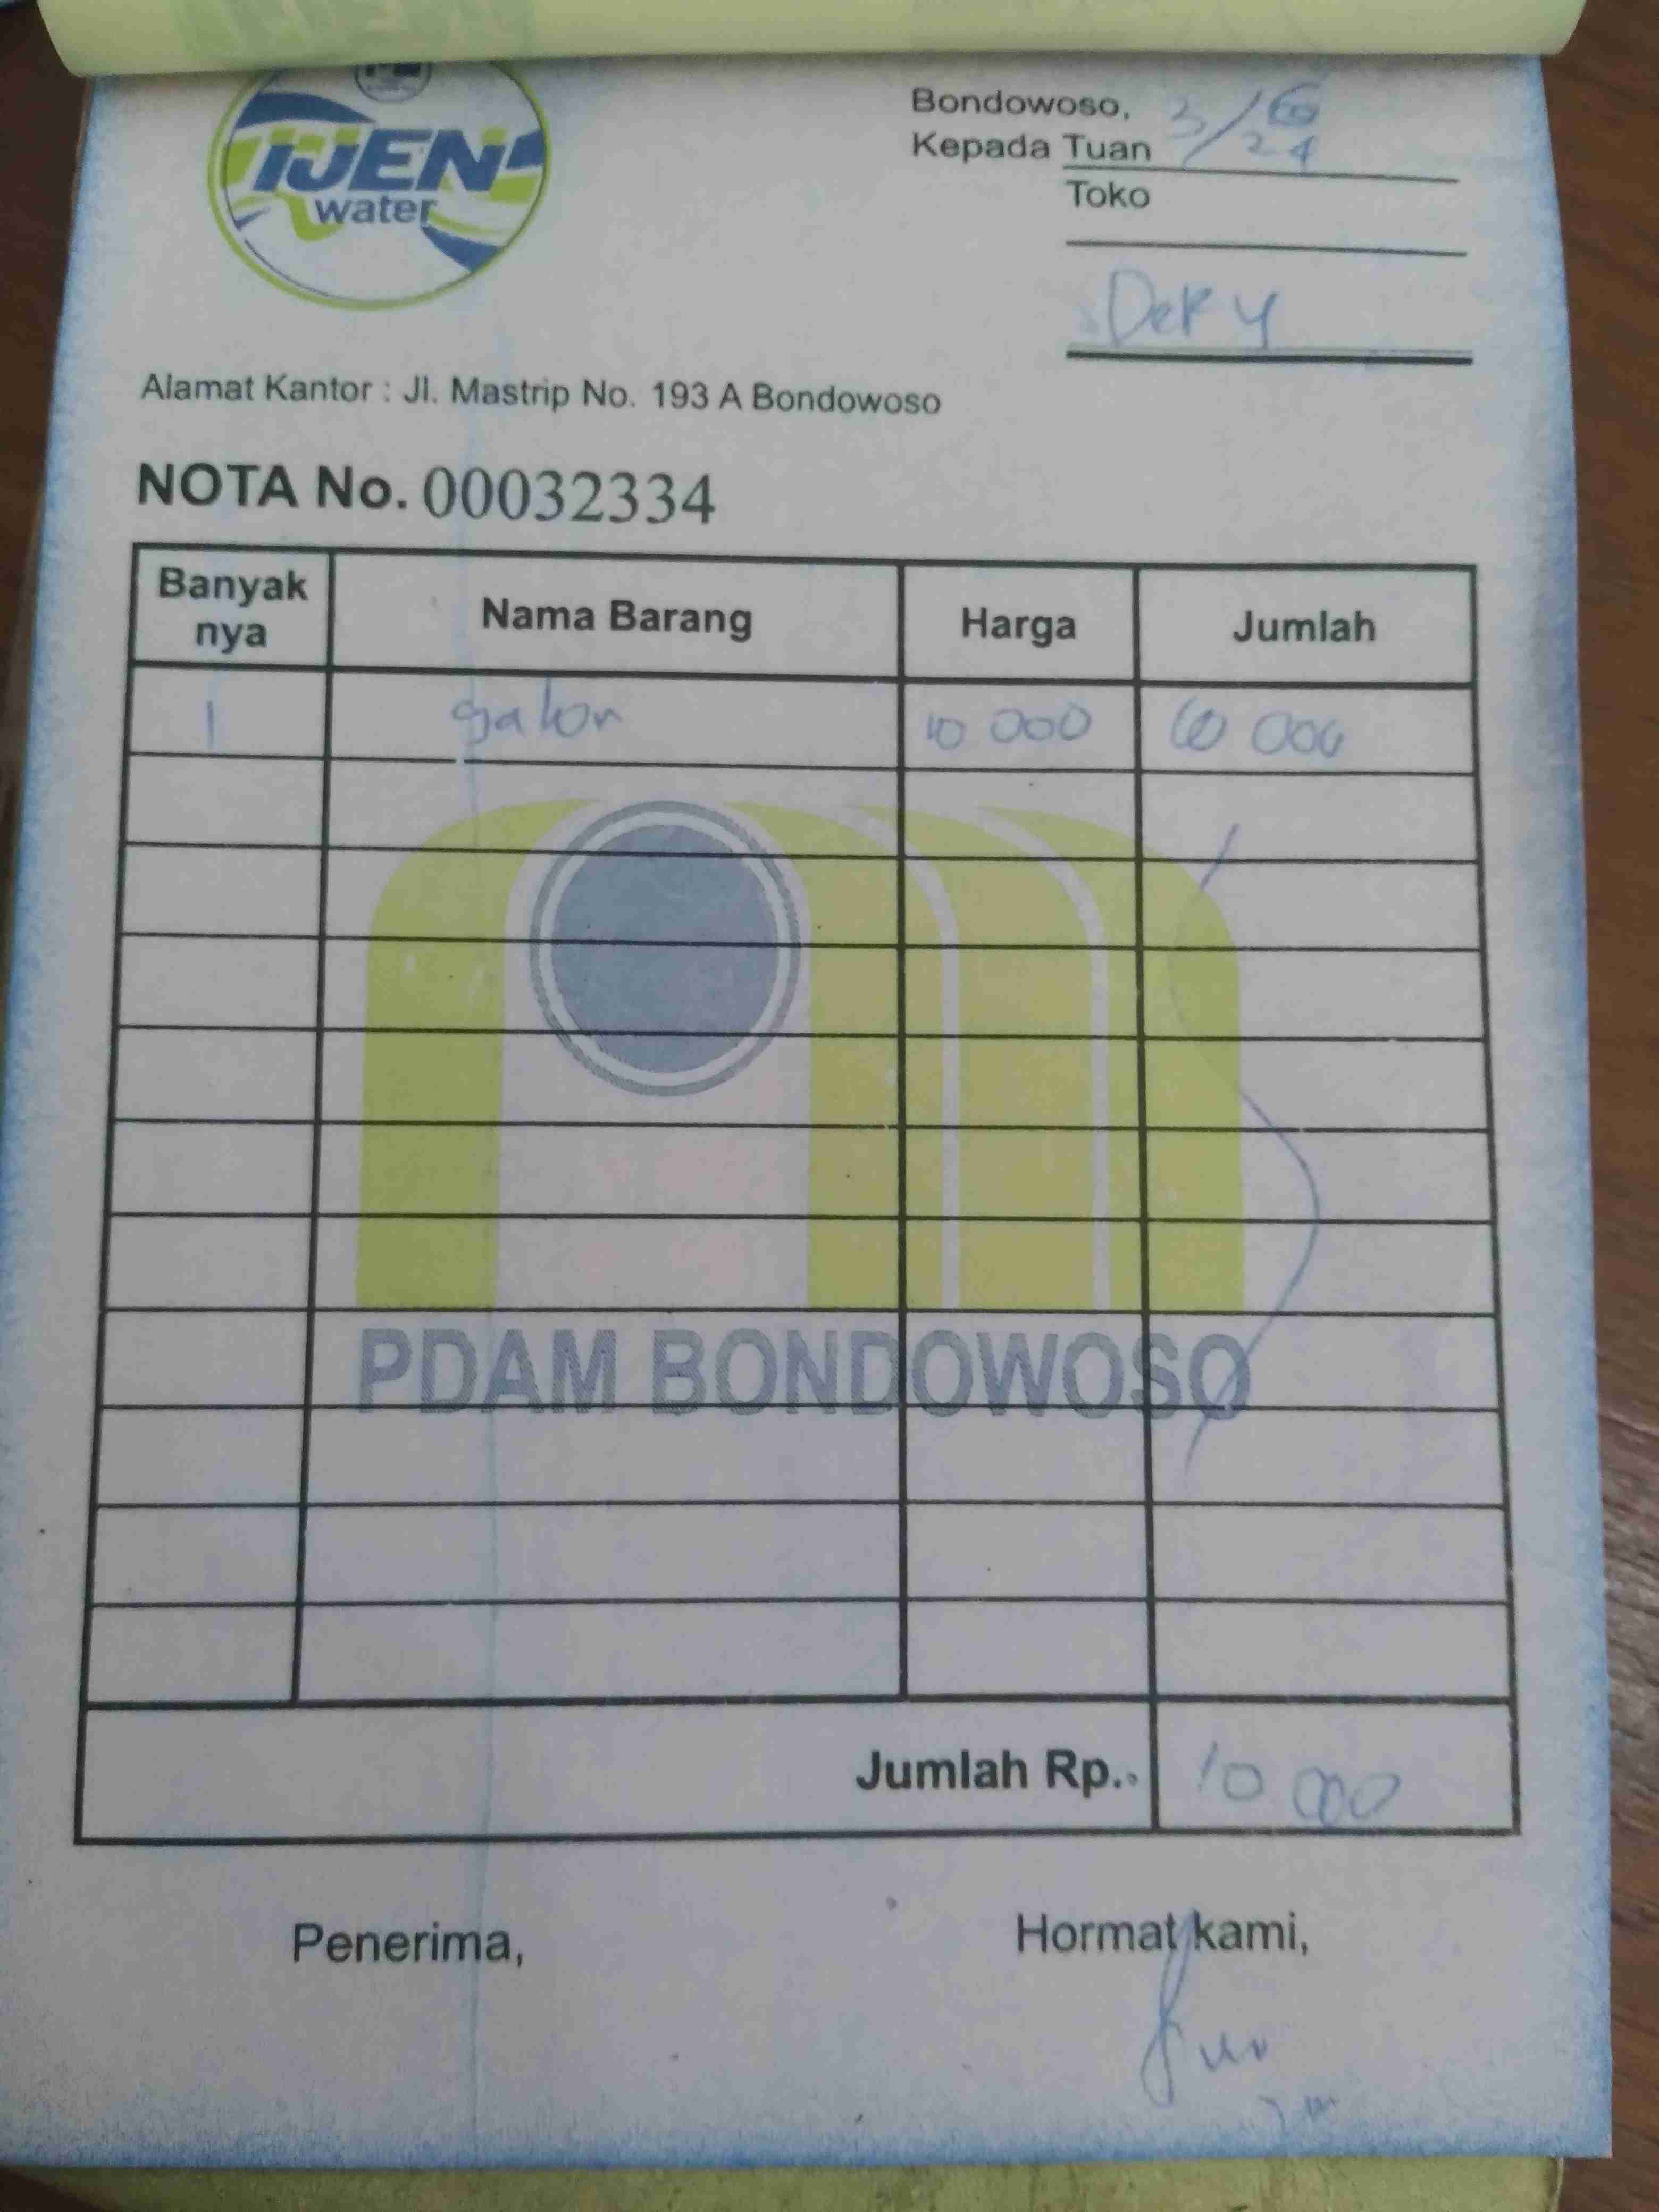 IJEN
water
Bondowoso, 3/6
Kepada Tuan 24
Toko
Deky
Alamat Kantor : Jl. Mastrip No. 193 A Bondowoso
NOTA No. 00032334
Banyak nya Nama Barang Harga Jumlah
1 galon 10 000 10 000
PDAM BONDOWOSO
Jumlah Rp.. 10 000
Penerima, Hormat kami,